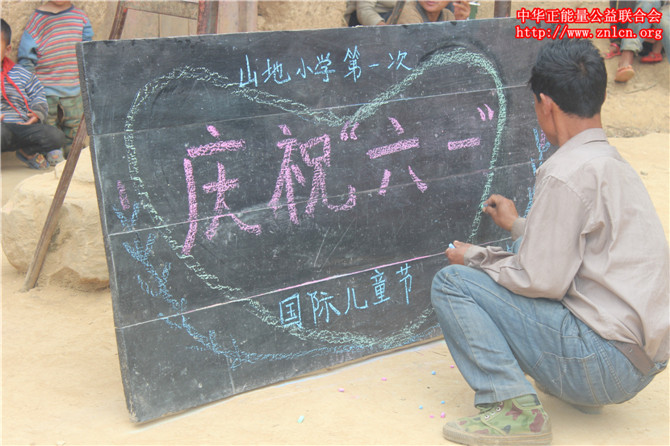 中华正能量公益联合会
http://www.znlcn.org
山地小学第一次
庆祝“六一”
国际儿童节